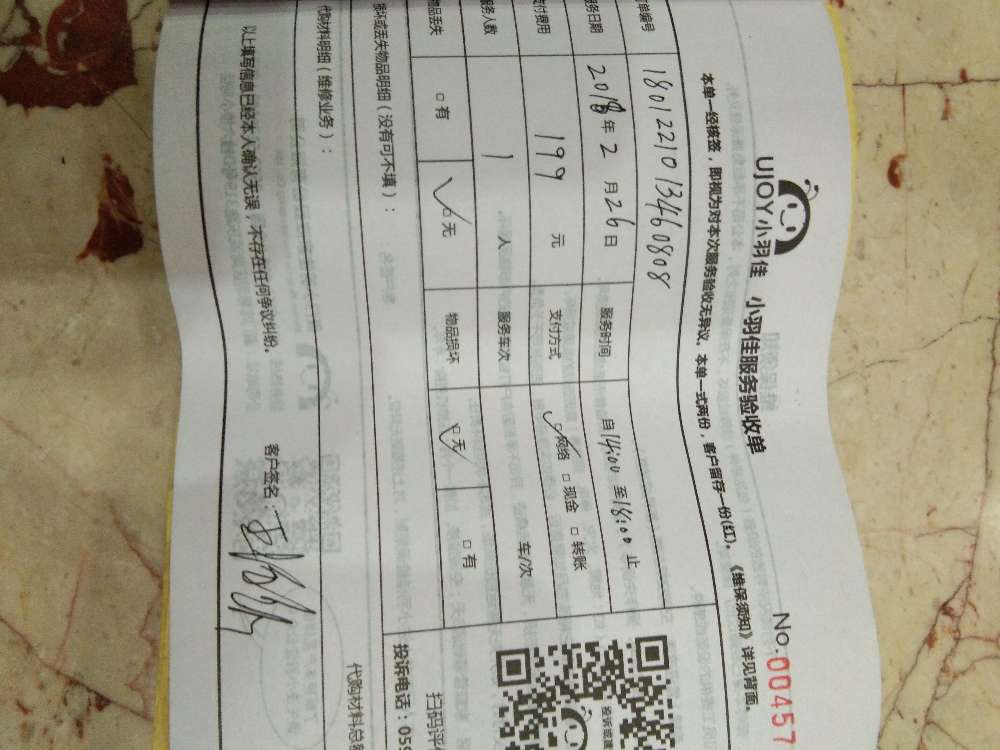 UJOY小羽佳 小羽佳服务验收单
No:00457
本单一经核签，即视为对本次服务验收无异议。本单一式两份，客户留存一份(红)。《维保须知》详见背面。
单编号 180122101346 0808
服务日期 2018年2月26日 服务时间 自14:00至18:00止
支付费用 199元 支付方式 ☑网络 □现金 □转账
服务人数 1 人 服务车次 车/次
物品丢失 □有 ☑无 物品损坏 ☑无 □有
损坏或丢失物品明细（没有可不填）：
投诉建
扫码评
投诉电话：059
代购材料明细（维修业务）：
代购材料总
以上填写信息已经本人确认无误，不存在任何争议纠纷。
客户签名：